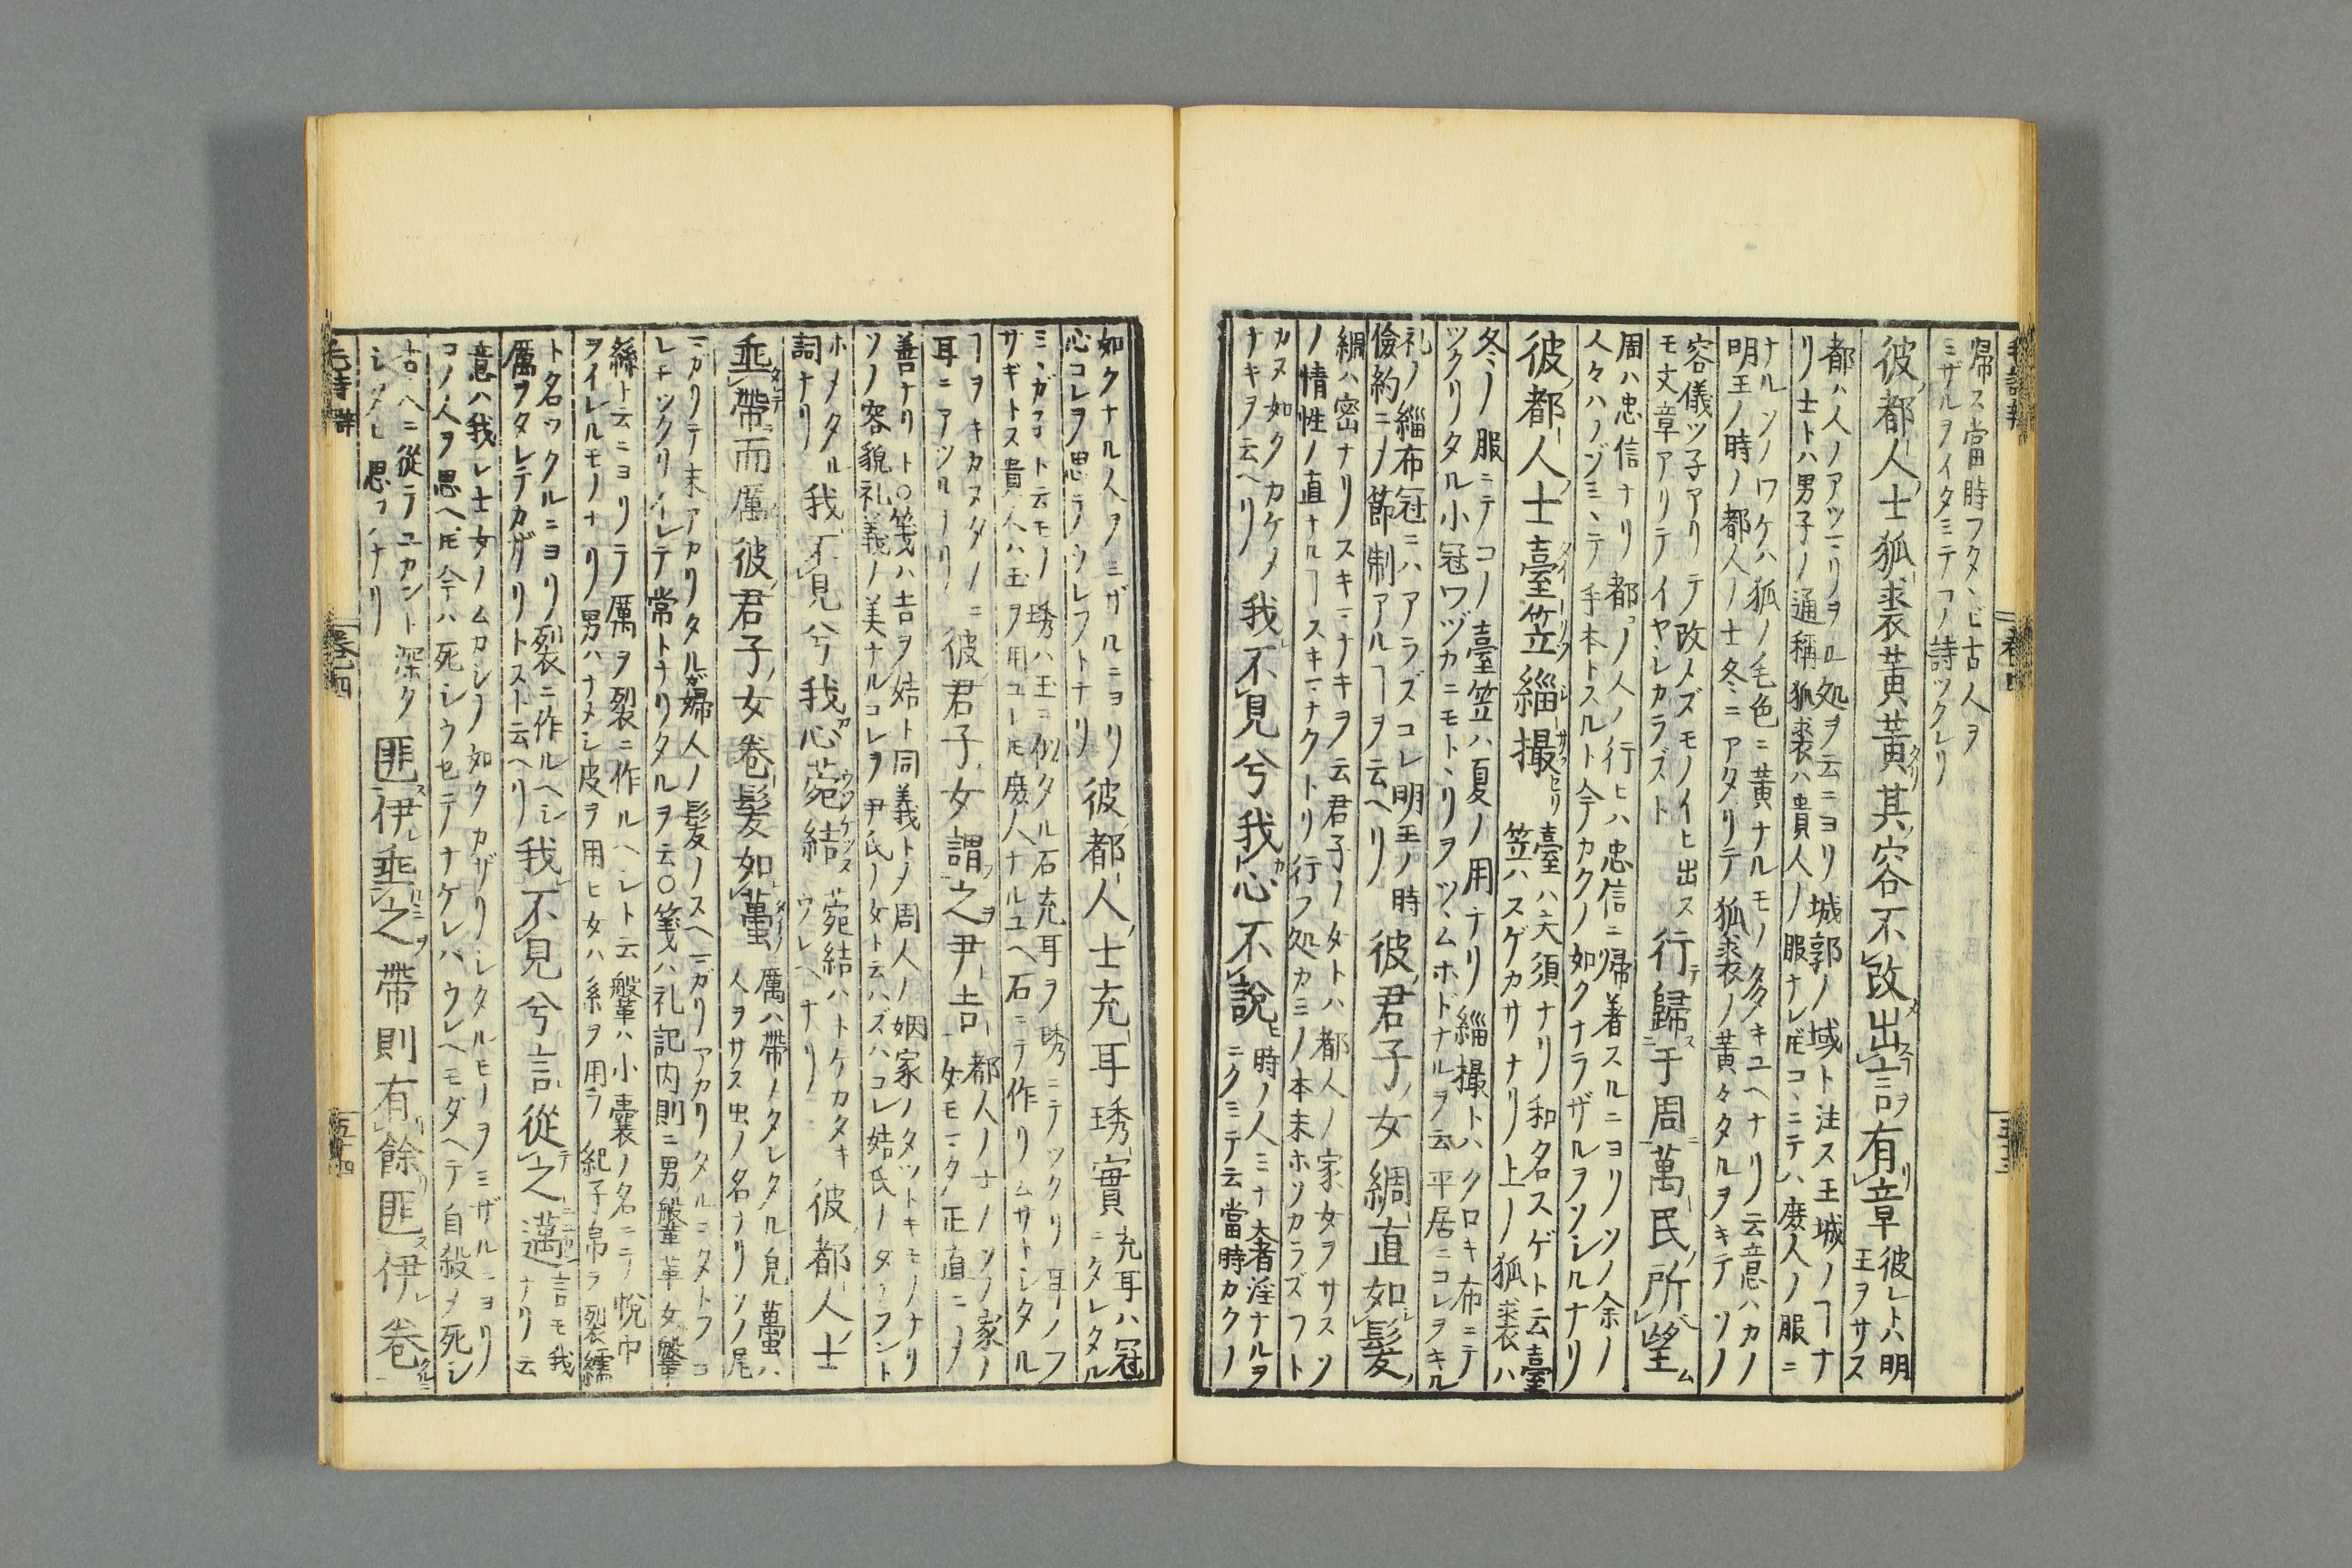 帰ス當時フタヽビ古人ヲ
ミザルヲイタミテコノ詩ツクレリ
彼都人士狐裘黄黄其容不改出言有章
彼レトハ明
王ヲサス
都ハ人ノアツマリヲル処ヲ云ニヨリ城郭ノ域ト注ス王城ノヿナ
リ士トハ男子ノ通稱狐裘ハ貴人ノ服ナレ𪜈コヽニテハ庶人ノ服ニ
ナルソノワケハ狐ノ毛色ニ黄ナルモノ多キユヘナリ云意ハカノ
明王ノ時ノ都人ノ士冬ニアタリテ狐裘ノ黄々タルヲキテソノ
容儀ツ子アリテ改メズモノイヒ出ス
モ文章アリテイヤシカラズト
行歸于周萬民所望
周ハ忠信ナリ都ノ人ノ行ヒハ忠信ニ帰着スルニヨリソノ余ノ
人々ハノゾミヽテ手本トスルト今カクノ如クナラザルヲソシルナリ
彼都人士臺笠緇撮
臺ハ夫須ナリ和名スゲト云臺
笠ハスゲカサナリ上ノ狐裘ハ
冬ノ服ニテコノ臺笠ハ夏ノ用ナリ緇撮トハクロキ布ニテ
ツクリタル小冠ワヅカニモトヽリヲツヽムホドナルヲ云平居ニコレヲキル
礼ノ緇布冠ニハアラズコレ明王ノ時
儉約ニメ節制アルヿヲ云ヘリ
彼君子女綢直如髮
綢ハ密ナリスキマナキヲ云君子ノ女トハ都人ノ家女ヲサスソ
ノ情性ノ直ナルヿスキマナクトリ行フ処カミノ本末ホソカラズフト
カヌ如クカケメ
ナキヲ云ヘリ
我不見兮我心不說
時ノ人ミナ奢淫ナルヲ
ニクミテ云當時カクノ
如クナル人ヲミザルニヨリ
心コレヲ思ラノウレフトナリ
彼都人士充耳琇實
充耳ハ冠
ニタレタル
ミヽガコト云モノ琇ハ玉ニ似タル石充耳ヲ琇ニテツクリ耳ノフ
サギトス貴人ハ玉ヲ用ユレ𪜈庶人ナルユヘ石ニテ作リムサトシタル
ヿヲキカヌタメニ
耳ニアツルナリ
彼君子女謂之尹吉
都人ノ士ノソノ家ノ
女モマタ正直ニメ
善ナリト○箋ハ吉ヲ姞ト同義トメ周人ノ姻家ノタツトキモノナリ
ソノ容貌礼義ノ美ナルコレヲ尹氏ノ女ト云ハズハコレ姞氏ノ女ラント
ホメタル
詞ナリ
我不見兮我心菀結
菀結ハトケカタキ
ウレヘナリ
彼都人士
垂帶而厲彼君子女卷髮如蠆
厲ハ帶ノタレタル皃蠆ハ
人ヲサス虫ノ名ナリソノ尾
マガリテ末アカリタルガ婦人ノ髮ノスヘマガリアカリタルニタトフコ
レチツクリイレテ常トナリタルヲ云○箋ハ礼記内則ニ男鞶革女鞶
絲ト云ニヨリテ厲ヲ裂ニ作ルヘシト云鞶ハ小囊ノ名ニテ帨巾
ヲイレルモノナリ男ハナメシ皮ヲ用ヒ女ハ糸ヲ用ラ紀子帛ヲ裂繻
ト名ツクルニヨリ裂ニ作ルヘシ
厲ヲタレテカザリトスト云ヘリ
我不見兮言從之邁
言モ我
ナリ云
意ハ我レ士女ノムカシノ如クカザリシタルモノヲミザルニヨリ
コノ人ヲ思ヘ𪜈今ハ死シウセテナケレバウレヘモダヘテ自殺メ死シ
古ヘニ從ラユカント深ク
シタヒ思フナリ
匪伊垂之帶則有餘匪伊卷